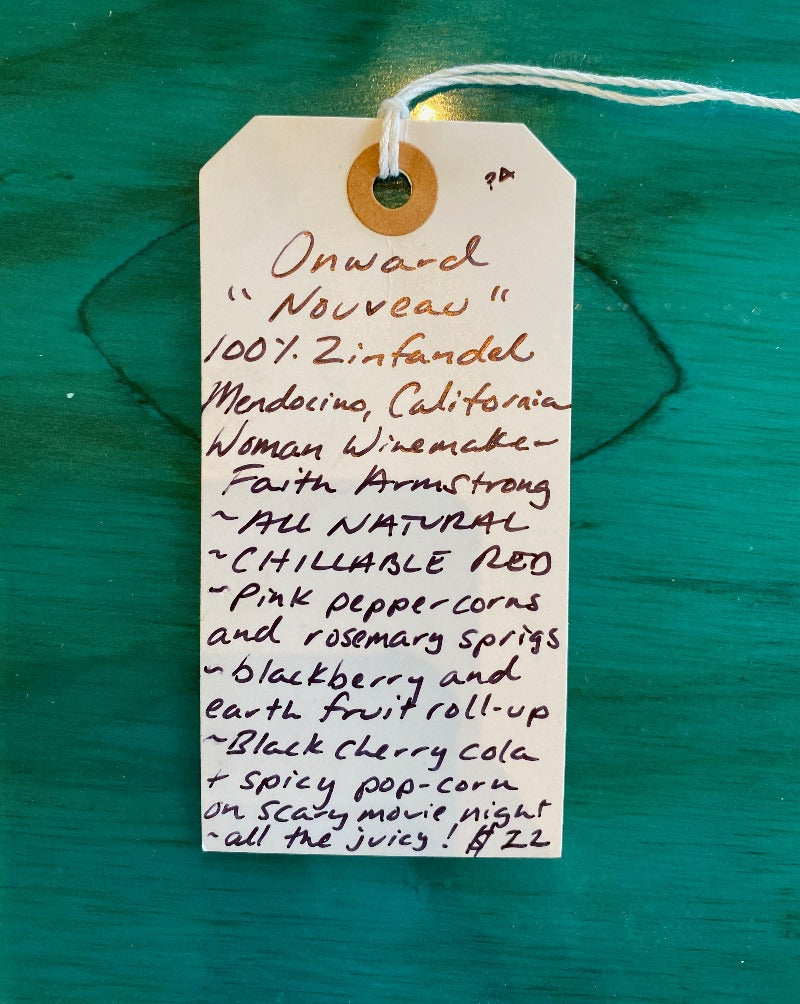 Onward
"Nouveau"
100% Zinfandel
Mendocino, California
Woman Winemaker
Faith Armstrong
~ALL NATURAL
~CHILLABLE RED
~Pink peppercorns
and rosemary sprigs
~blackberry and
earth fruit roll-up
~Black cherry cola
+ spicy pop-corn
on scary movie night
~all the juicy! $22